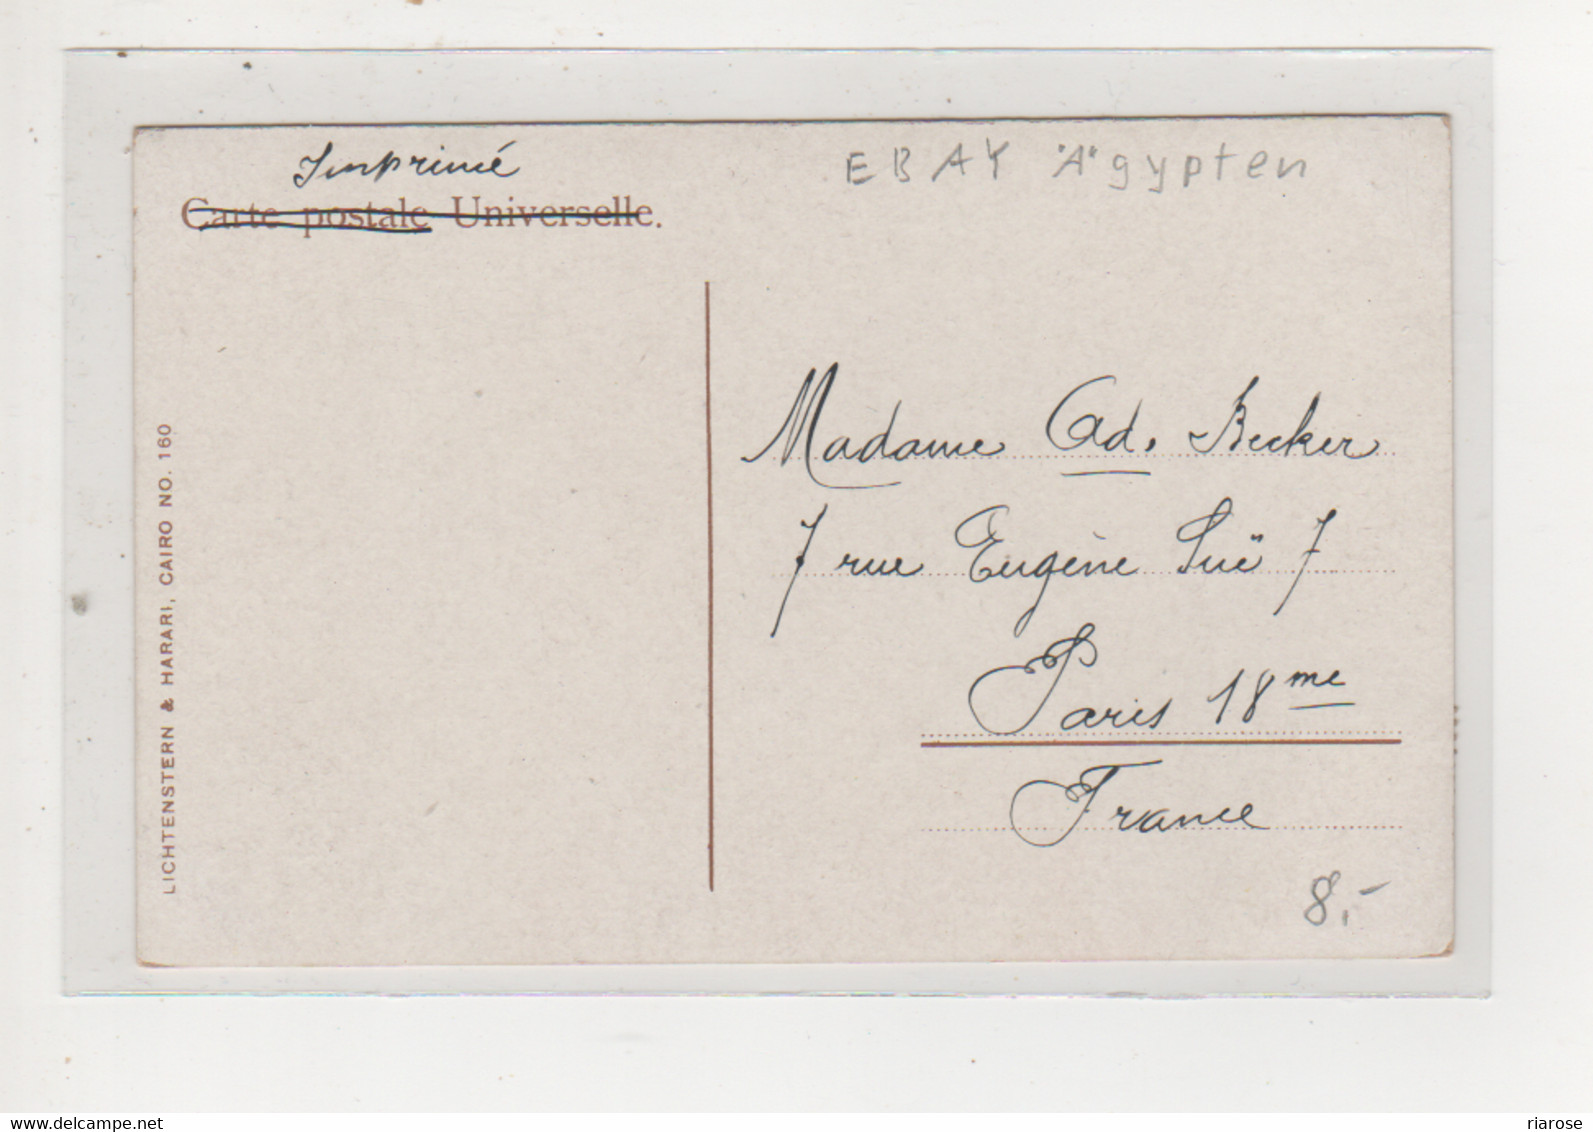 Imprimé
EBAY "A"gypten
Carte postale Universelle.
Madame Ad. Becker
7 rue Eugène Suë 7
Paris 18me
France
8.-
LICHTENSTERN & HARARI, CAIRO NO. 160
www.delcampe.net
riarose